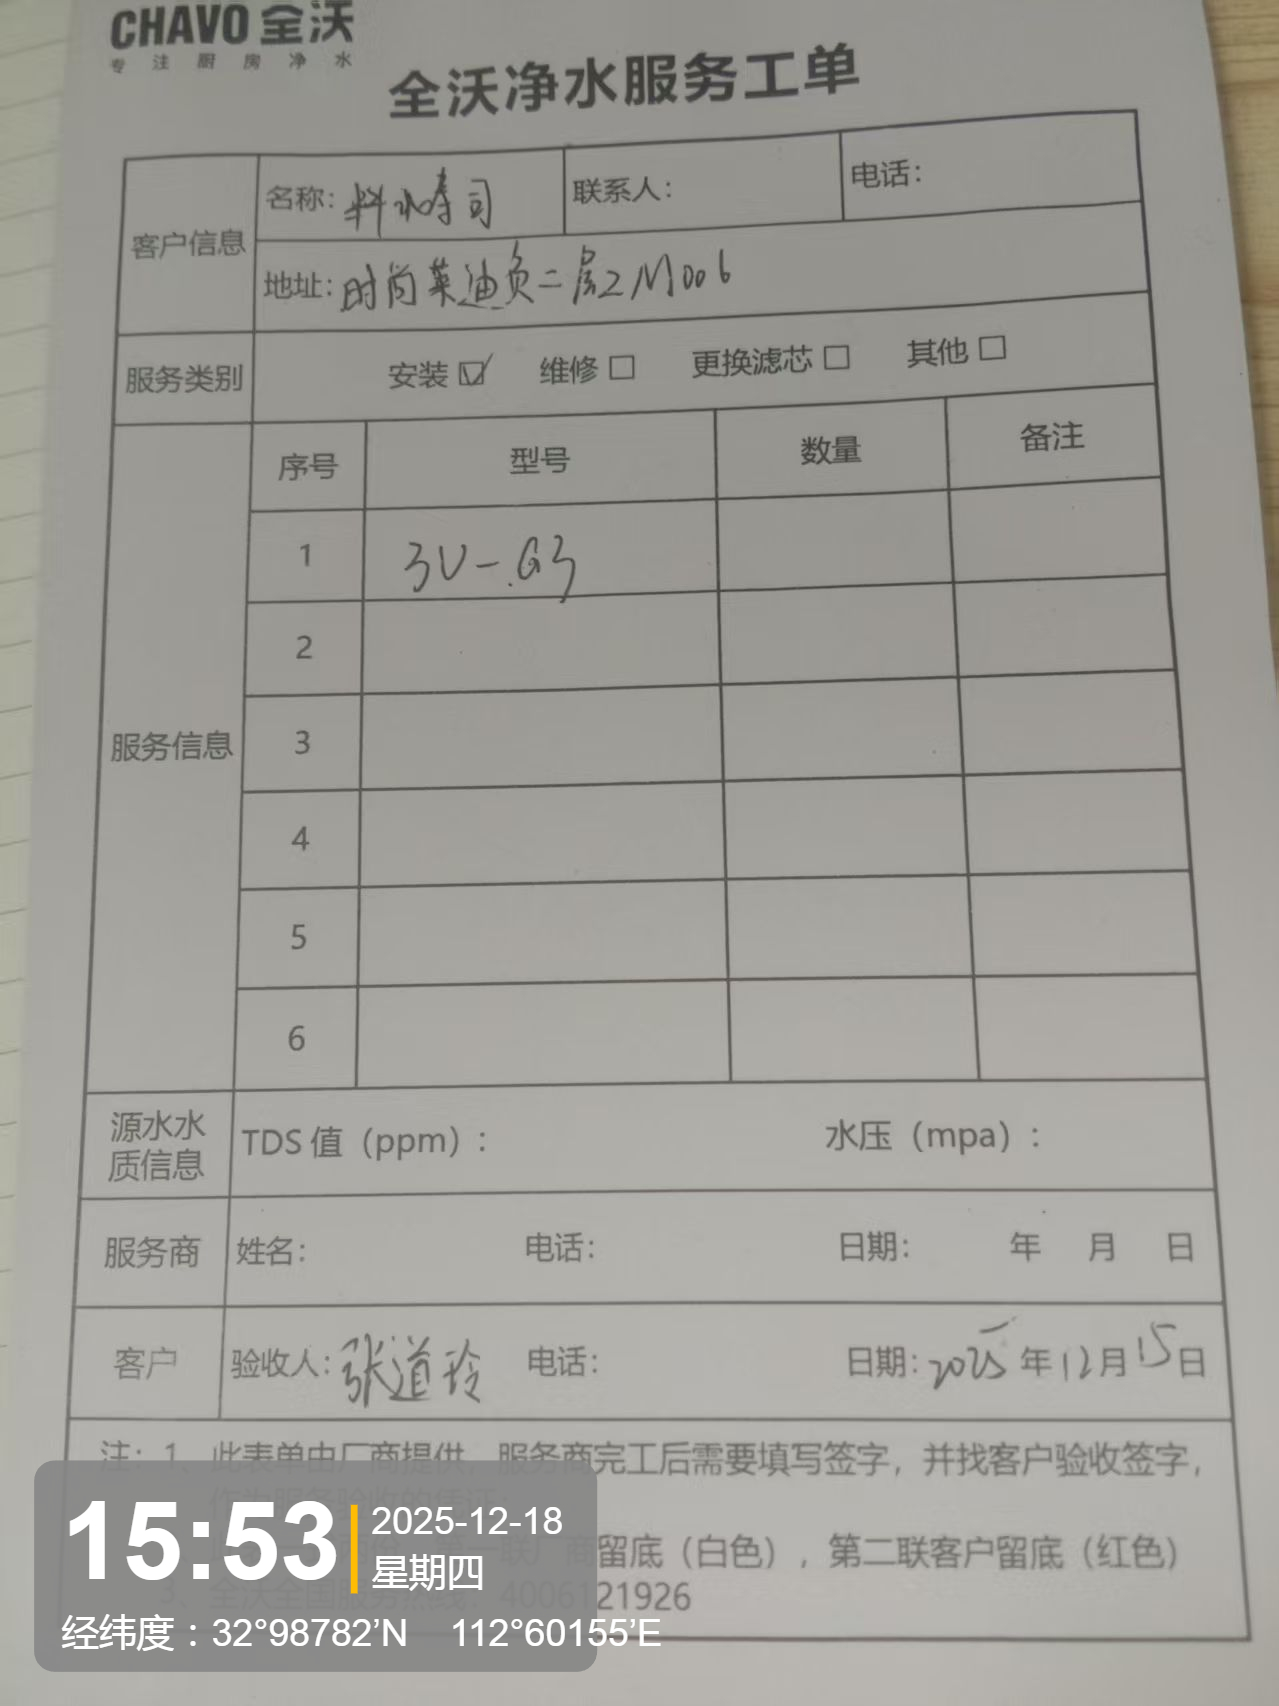 CHAVO 全沃
专注厨房净水
全沃净水服务工单
客户信息
名称：料水寿司 联系人： 电话：
地址：时尚莱迪负二层2M006
服务类别 安装☑ 维修☐ 更换滤芯☐ 其他☐
服务信息
序号 型号 数量 备注
1 3V-G3
2
3
4
5
6
源水水质信息 TDS 值（ppm）： 水压（mpa）：
服务商 姓名： 电话： 日期： 年 月 日
客户 验收人：张道玲 电话： 日期：2025年12月15日
注：1、此表单由厂商提供，服务商完工后需要填写签字，并找客户验收签字，
作为服务验收的凭证；
留底（白色），第二联客户留底（红色）
3、全沃全国服务热线：4006121926
15:53
2025-12-18
星期四
经纬度：32°98782'N 112°60155'E